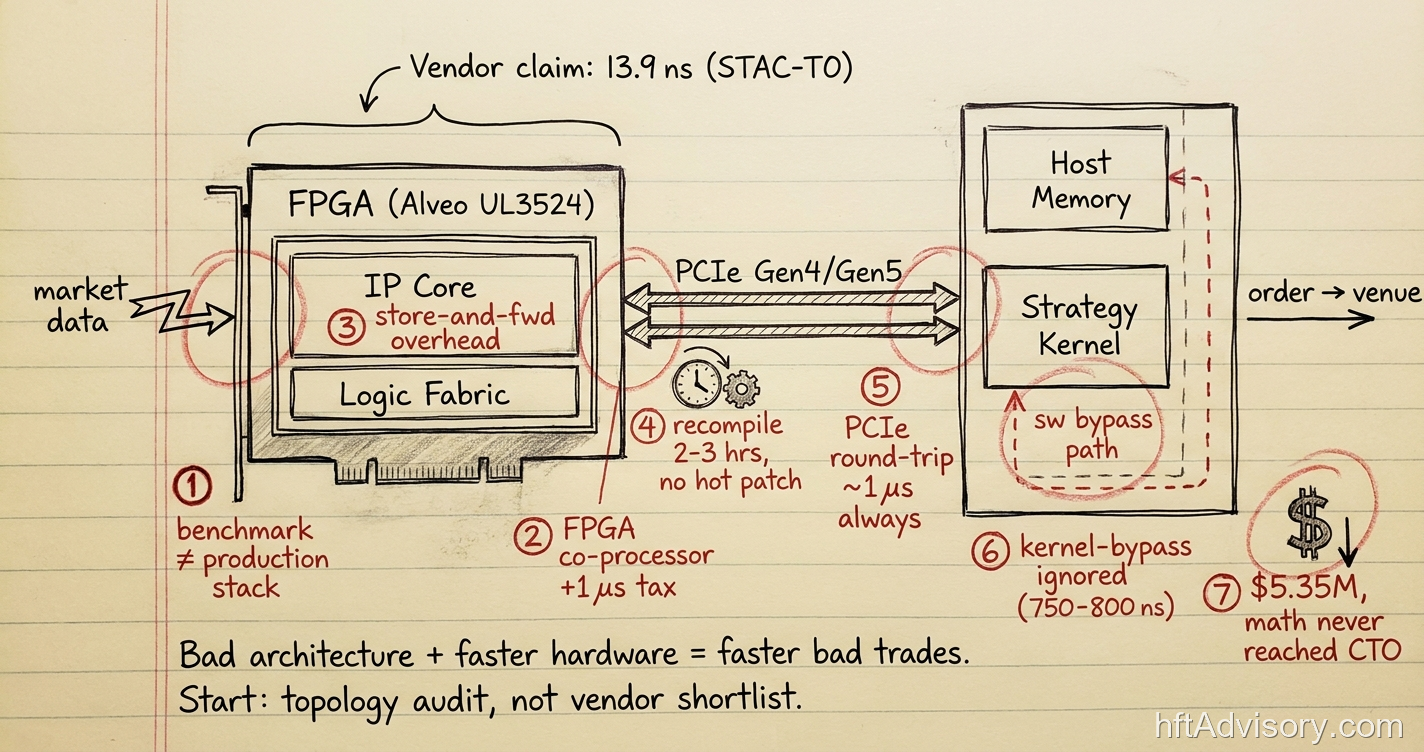 Vendor claim: 13.9 ns (STAC-T0)
FPGA (Alveo UL3524)
market
data
IP Core
③ store-and-fwd
overhead
Logic Fabric
PCIe Gen4/Gen5
Host
Memory
Strategy
Kernel
sw bypass
path
order → venue
①
benchmark
≠ production
stack
② FPGA
co-processor
+1 µs tax
④ recompile
2-3 hrs,
no hot patch
⑤
PCIe
round-trip
~1 µs
always
⑥ kernel-bypass
ignored
(750-800 ns)
$
⑦ $5.35M,
math never
reached CTO
Bad architecture + faster hardware = faster bad trades.
Start: topology audit, not vendor shortlist.
hftAdvisory.com